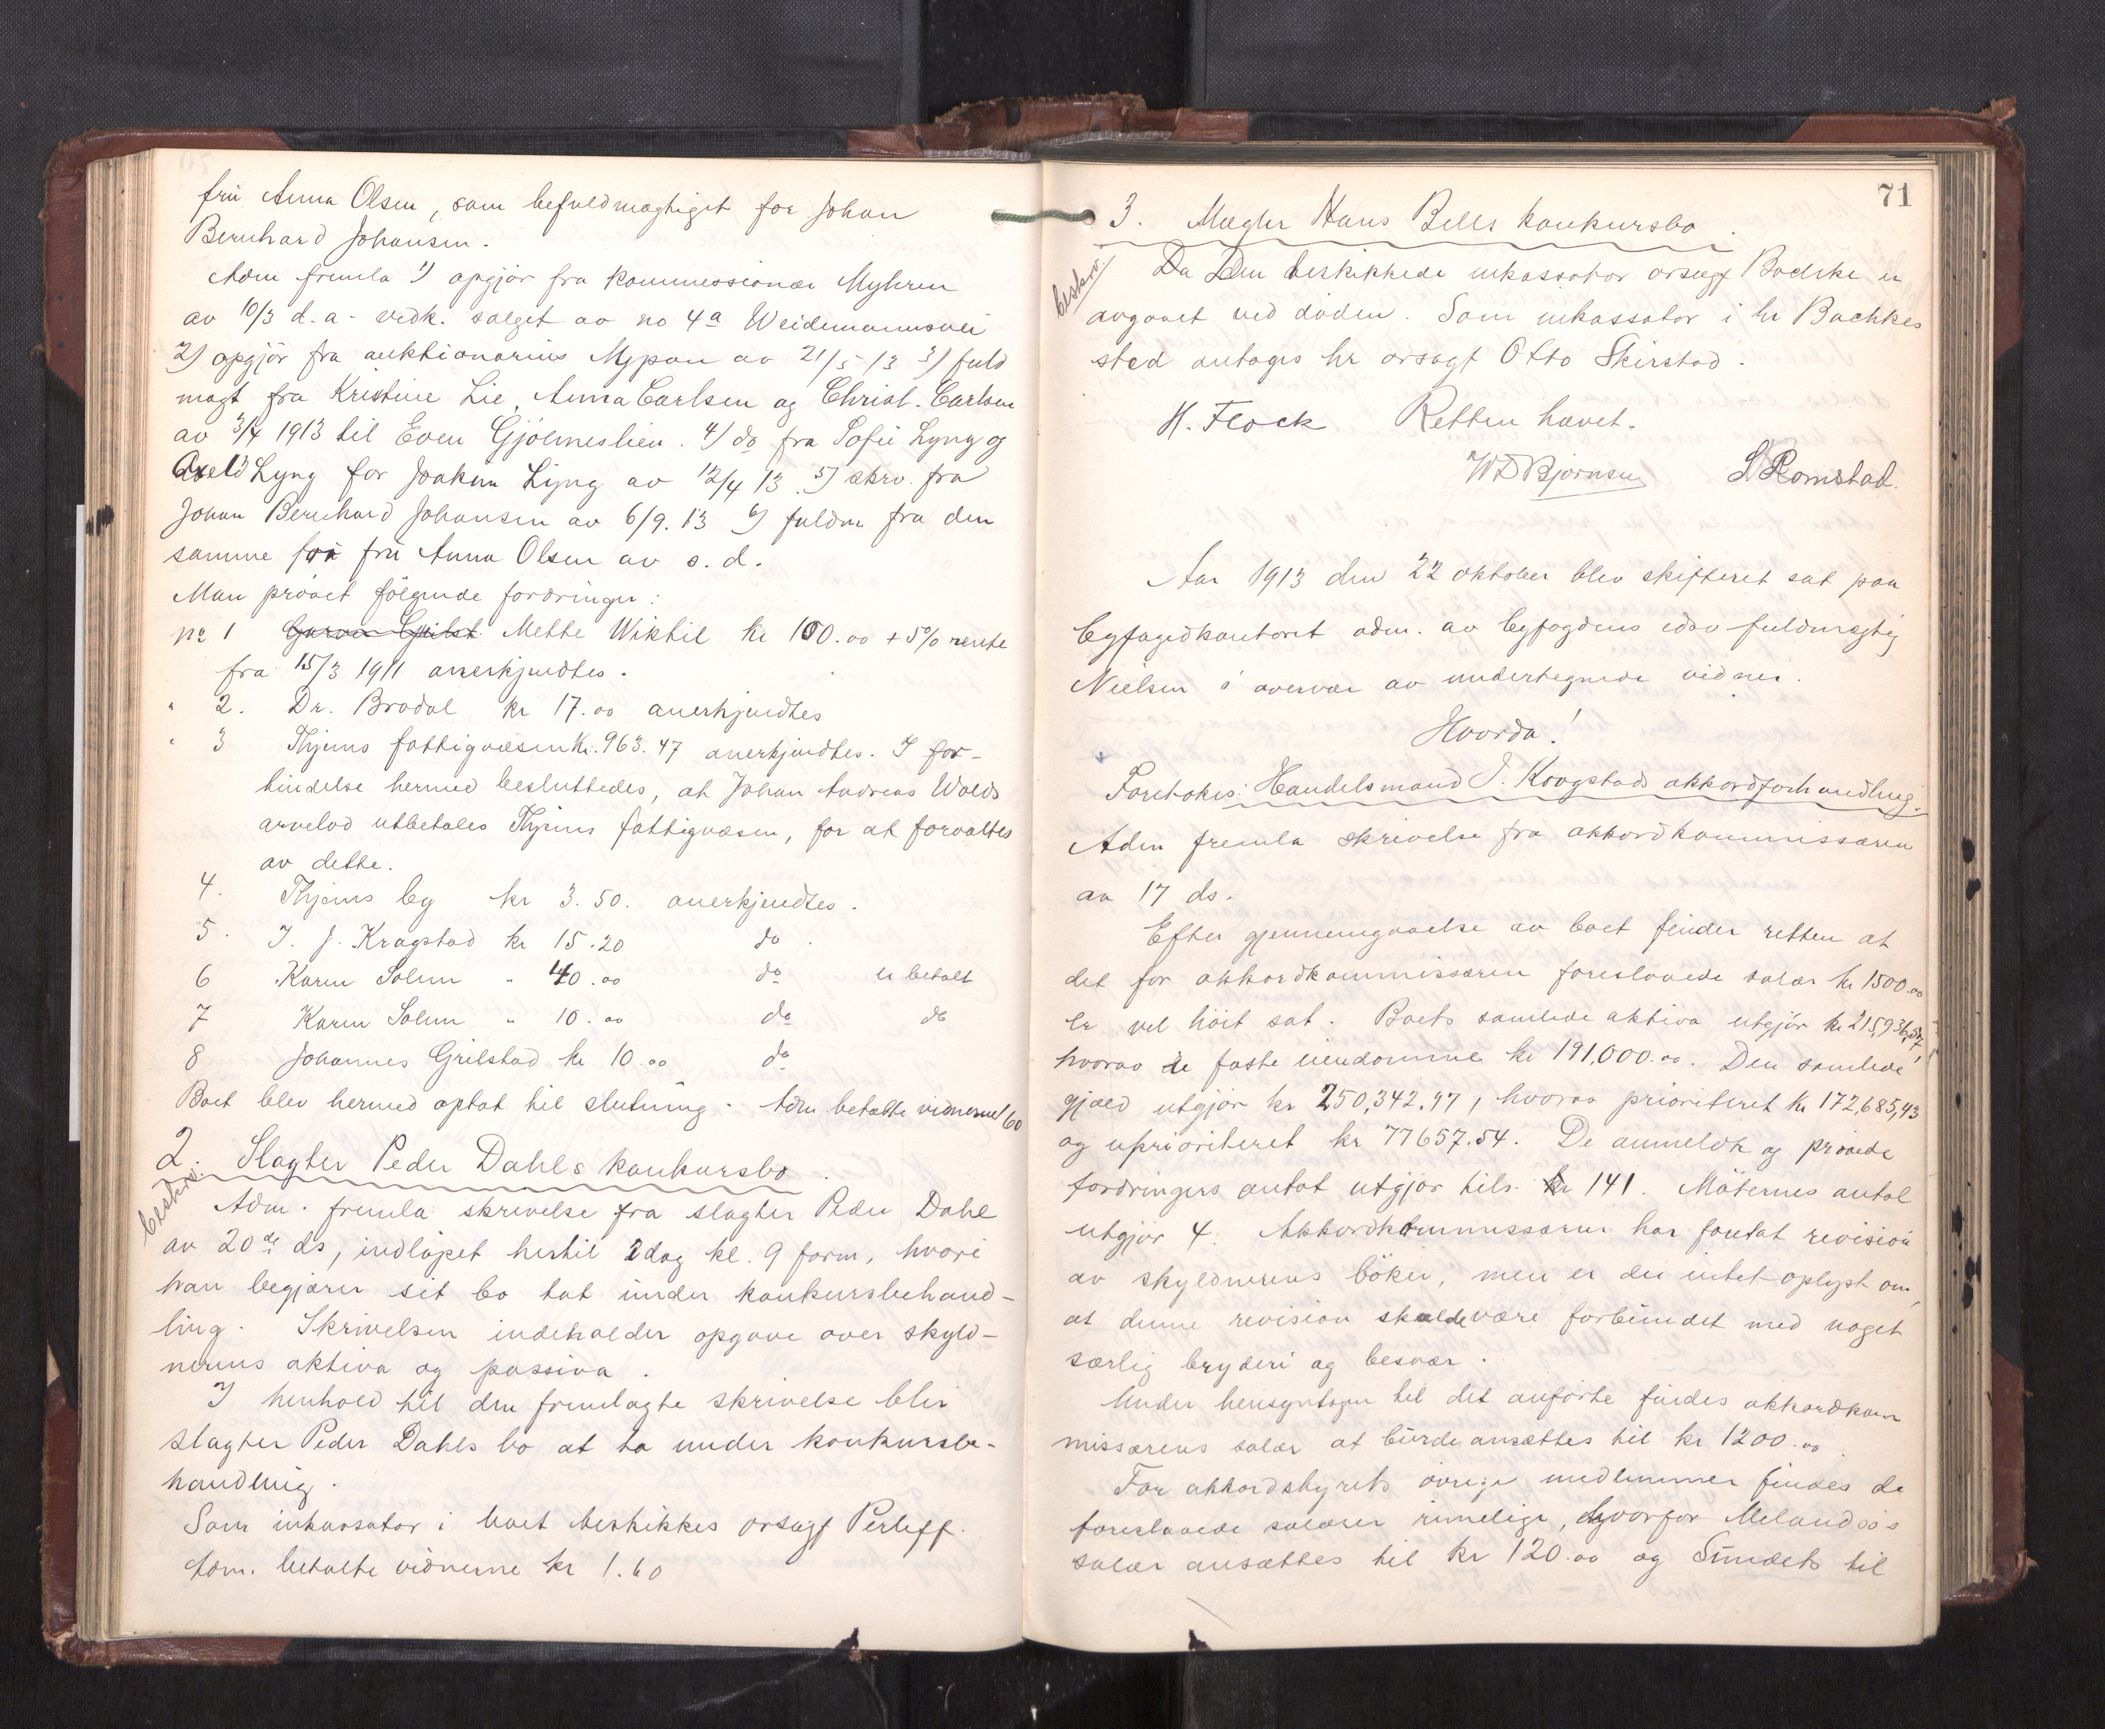 fru Anna Olsen, som befuldmægtiget for Johan
Bernhard Johansen.
Adm fremla 1) opgjør fra kommissionær Myhren
av 10/3 d.a. vedk. salget av no 4a Weidemannsvei
2) opgjør fra auktionarius Mypan av 21/5 13 3) fuld
magt fra Kristine Lie, Anna Carlsen og Christ. Carlsen
av 3/4 1913 til Even Gjølmeslien. 4) do fra Sofie Lyng og
Axel Lyng for Joakim Lyng av 12/4 13. 5) skriv. fra
Johan Bernhard Johansen av 6/9. 13 6) fuldm fra den
samme for fru Anna Olsen av s. d.
Man prøvet følgende fordringer:
No 1 Mette Wiktil kr 100.00 + 5% rente
fra 15/3 1911 anerkjendtes.
" 2. Dr. Bradal kr 17.00 anerkjendtes
" 3 Thjems fattigvæsen kr. 963.47 anerkjendtes. I for-
bindelse hermed besluttedes, at Johan Andreas Wolds
arvelod utbetales Thjems fattigvæsen, for at forvaltes
av dette.
4. Thjems by kr 3.50. anerkjendtes.
5. I. J. Kragstad kr 15.20 do.
6 Karen Solem " 40.00 do er betalt
7 Karen Solem " 10.00 do do
8 Johannes Grilstad kr 10.00 do
Boet blev hermed optat til slutning. Adm. betalte vidnerne 1/60
2. Slagter Peder Dahls konkursbo.
beskrv.
Adm. fremla skrivelse fra slagter Peder Dahl
av 20de ds, indløpet hertil idag kl. 9 form, hvori
han begjærer sit bo tat under konkursbehand-
ling. Skrivelsen indeholder opgave over skyld-
nerens aktiva og passiva.
I henhold til den fremlagte skrivelse blir
slagter Peder Dahls bo at ta under konkursbe-
handling.
Som inkassator i boet beskikkes orsagf Perleff.
Adm. betalte vidnerne kr 1.60
71
3. Mægler Hans Bells konkursbo.
beskrv.
Da Den beskikkede inkassator orsagf Bachke er
avgaaet ved døden. Som inkassator i hr Bachkes
sted antages hr orsagf Otto Skirstad.
H. Flock Retten hævet.
W D Bjørnsen S Romstad.
Aar 1913 den 22 oktober blev skifteret sat paa
byfogedkontoret adm. av byfogdens edsv fuldmægtig
Nielsen i overvær av undertegnede vidner.
Hvorda!
Foretokes: Handelsmand I. Kragstads akkordforhandling.
Adm fremla skrivelse fra akkordkommissæren
av 17 ds.
Efter gjennemgaaelse av boet finder retten at
det for akkordkommissæren foreslaaede salær kr 1500.00
er vel høit sat. Boets samlede aktiva utgjør kr 215,936,57,
hvorav de faste eiendomme kr 191,000.00. Den samlede
gjæld utgjør kr 250,342.97, hvorav prioriteret kr 172,685,43
og uprioriteret kr 77657.54. De anmeldte og prøvede
fordringers antal utgjør tils. 141. Møternes antal
utgjør 4. Akkordkommissæren har foretat revision
av skyldnerens bøker, men er der intet oplyst om,
at denne revision skulde være forbundet med noget
særlig bryderi og besvær.
Under hensyntagen til det anførte findes akkordkom
missærens salær at burde ansættes til kr 1200.00.
For akkordstyrets øvrige medlemmer findes de
foreslaaede salærer rimelige, hvorfor Melandsøs
salær ansættes til kr 120.00 og Sundets til